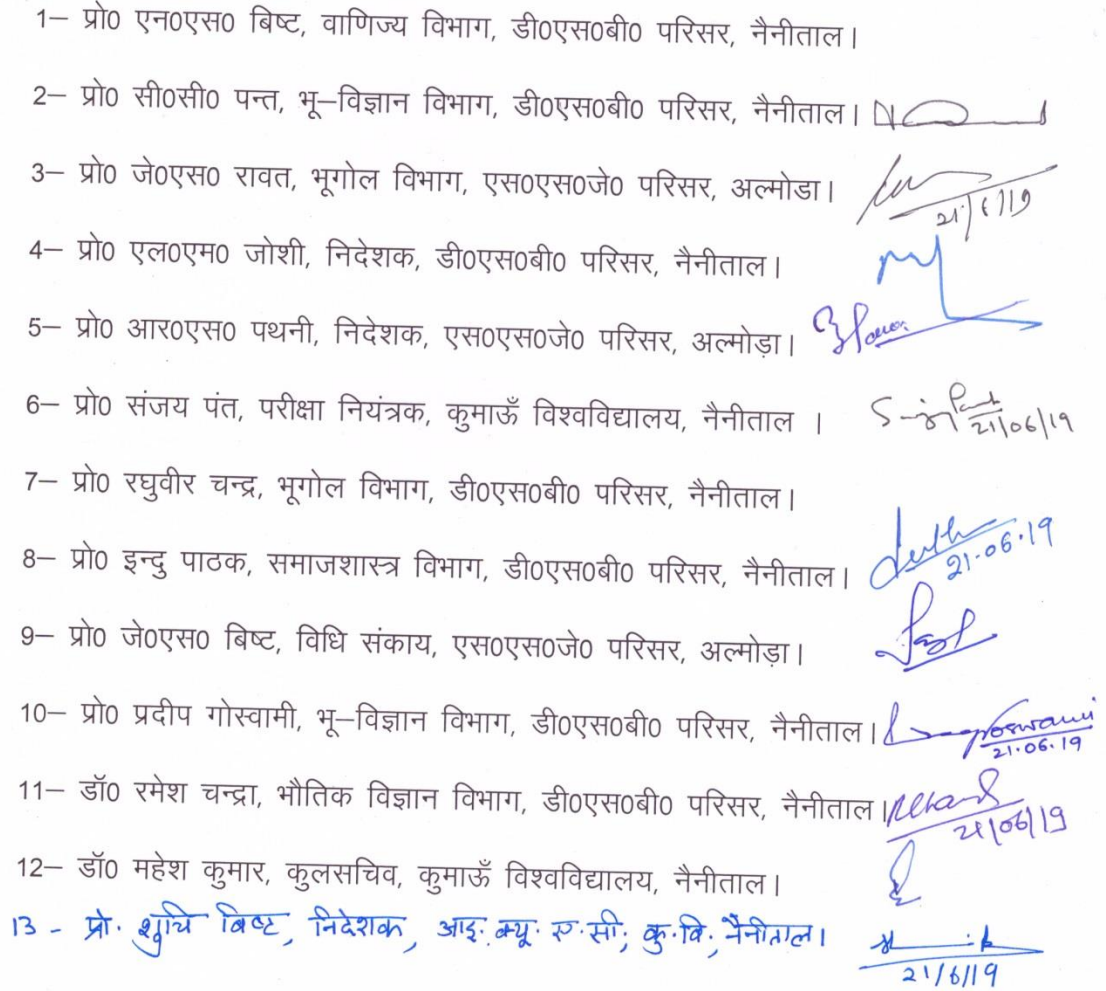 1– प्रो0 एन0एस0 बिष्ट, वाणिज्य विभाग, डी0एस0बी0 परिसर, नैनीताल।
2– प्रो0 सी0सी0 पन्त, भू–विज्ञान विभाग, डी0एस0बी0 परिसर, नैनीताल।
3– प्रो0 जे0एस0 रावत, भूगोल विभाग, एस0एस0जे0 परिसर, अल्मोडा।
21/6/19
4– प्रो0 एल0एम0 जोशी, निदेशक, डी0एस0बी0 परिसर, नैनीताल।
5– प्रो0 आर0एस0 पथनी, निदेशक, एस0एस0जे0 परिसर, अल्मोड़ा।
6– प्रो0 संजय पंत, परीक्षा नियंत्रक, कुमाऊँ विश्वविद्यालय, नैनीताल ।
21/06/19
7– प्रो0 रघुवीर चन्द्र, भूगोल विभाग, डी0एस0बी0 परिसर, नैनीताल।
8– प्रो0 इन्दु पाठक, समाजशास्त्र विभाग, डी0एस0बी0 परिसर, नैनीताल।
21.06.19
9– प्रो0 जे0एस0 बिष्ट, विधि संकाय, एस0एस0जे0 परिसर, अल्मोड़ा।
10– प्रो0 प्रदीप गोस्वामी, भू–विज्ञान विभाग, डी0एस0बी0 परिसर, नैनीताल। Goswami
21.06.19
11– डॉ0 रमेश चन्द्रा, भौतिक विज्ञान विभाग, डी0एस0बी0 परिसर, नैनीताल।
21/06/19
12– डॉ0 महेश कुमार, कुलसचिव, कुमाऊँ विश्वविद्यालय, नैनीताल।
13 - प्रो. शुचि बिष्ट, निदेशक, आइ. क्यू. ए. सी; कु. वि., नैनीताल।
21/6/19